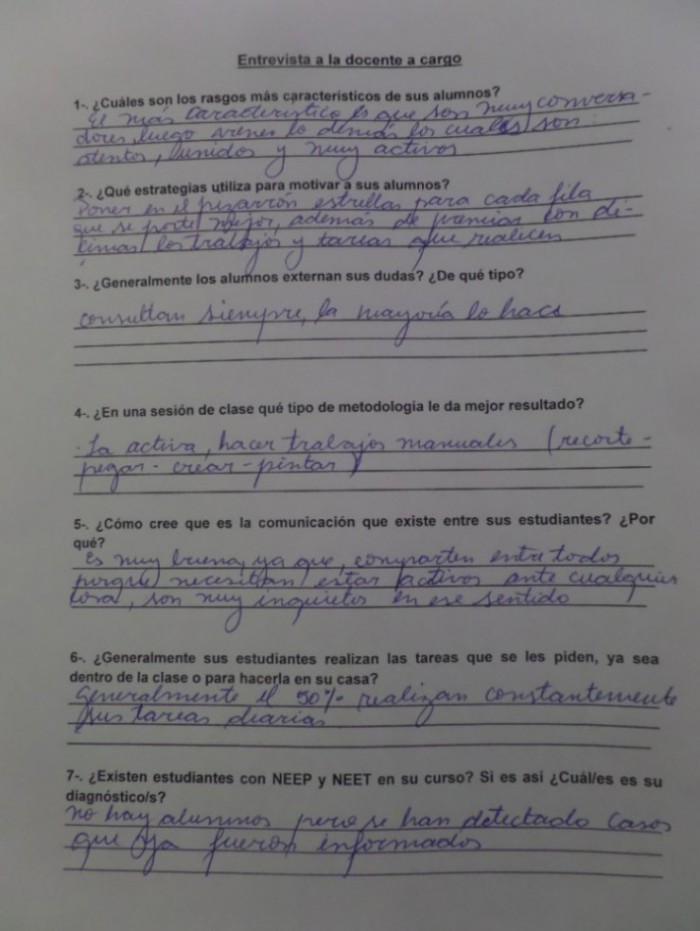 Entrevista a la docente a cargo
1-. ¿Cuáles són los rasgos más característicos de sus alumnos?
El más característico es que son muy conversa-
dores, luego vienen lo demás los cuales son
atentos, unidos y muy activos
2-. ¿Qué estrategias utiliza para motivar a sus alumnos?
Poner en el pizarrón estrellas para cada fila
que se porte mejor, además de premios con dé-
cimas los trabajos y tareas que realicen
3-. ¿Generalmente los alumnos externan sus dudas? ¿De qué tipo?
consultan siempre, la mayoría lo hace
4-. ¿En una sesión de clase qué tipo de metodologia le da mejor resultado?
La activa, hacer trabajos manuales (recorte -
pegar - crear - pintar)
5-. ¿Cómo cree que es la comunicación que existe entre sus estudiantes? ¿Por
qué?
Es muy buena, ya que, comparten entre todos
porque necesitan estar activos ante cualquier
cosa, son muy inquietos en ese sentido
6-. ¿Generalmente sus estudiantes realizan las tareas que se les piden, ya sea
dentro de la clase o para hacerla en su casa?
Generalmente el 50% realizan constantemente
sus tareas diarias
7-. ¿Existen estudiantes con NEEP y NEET en su curso? Si es asi ¿Cuál/es es su
diagnóstico/s?
no hay alumnos pero se han detectado casos
que ya fueron informados